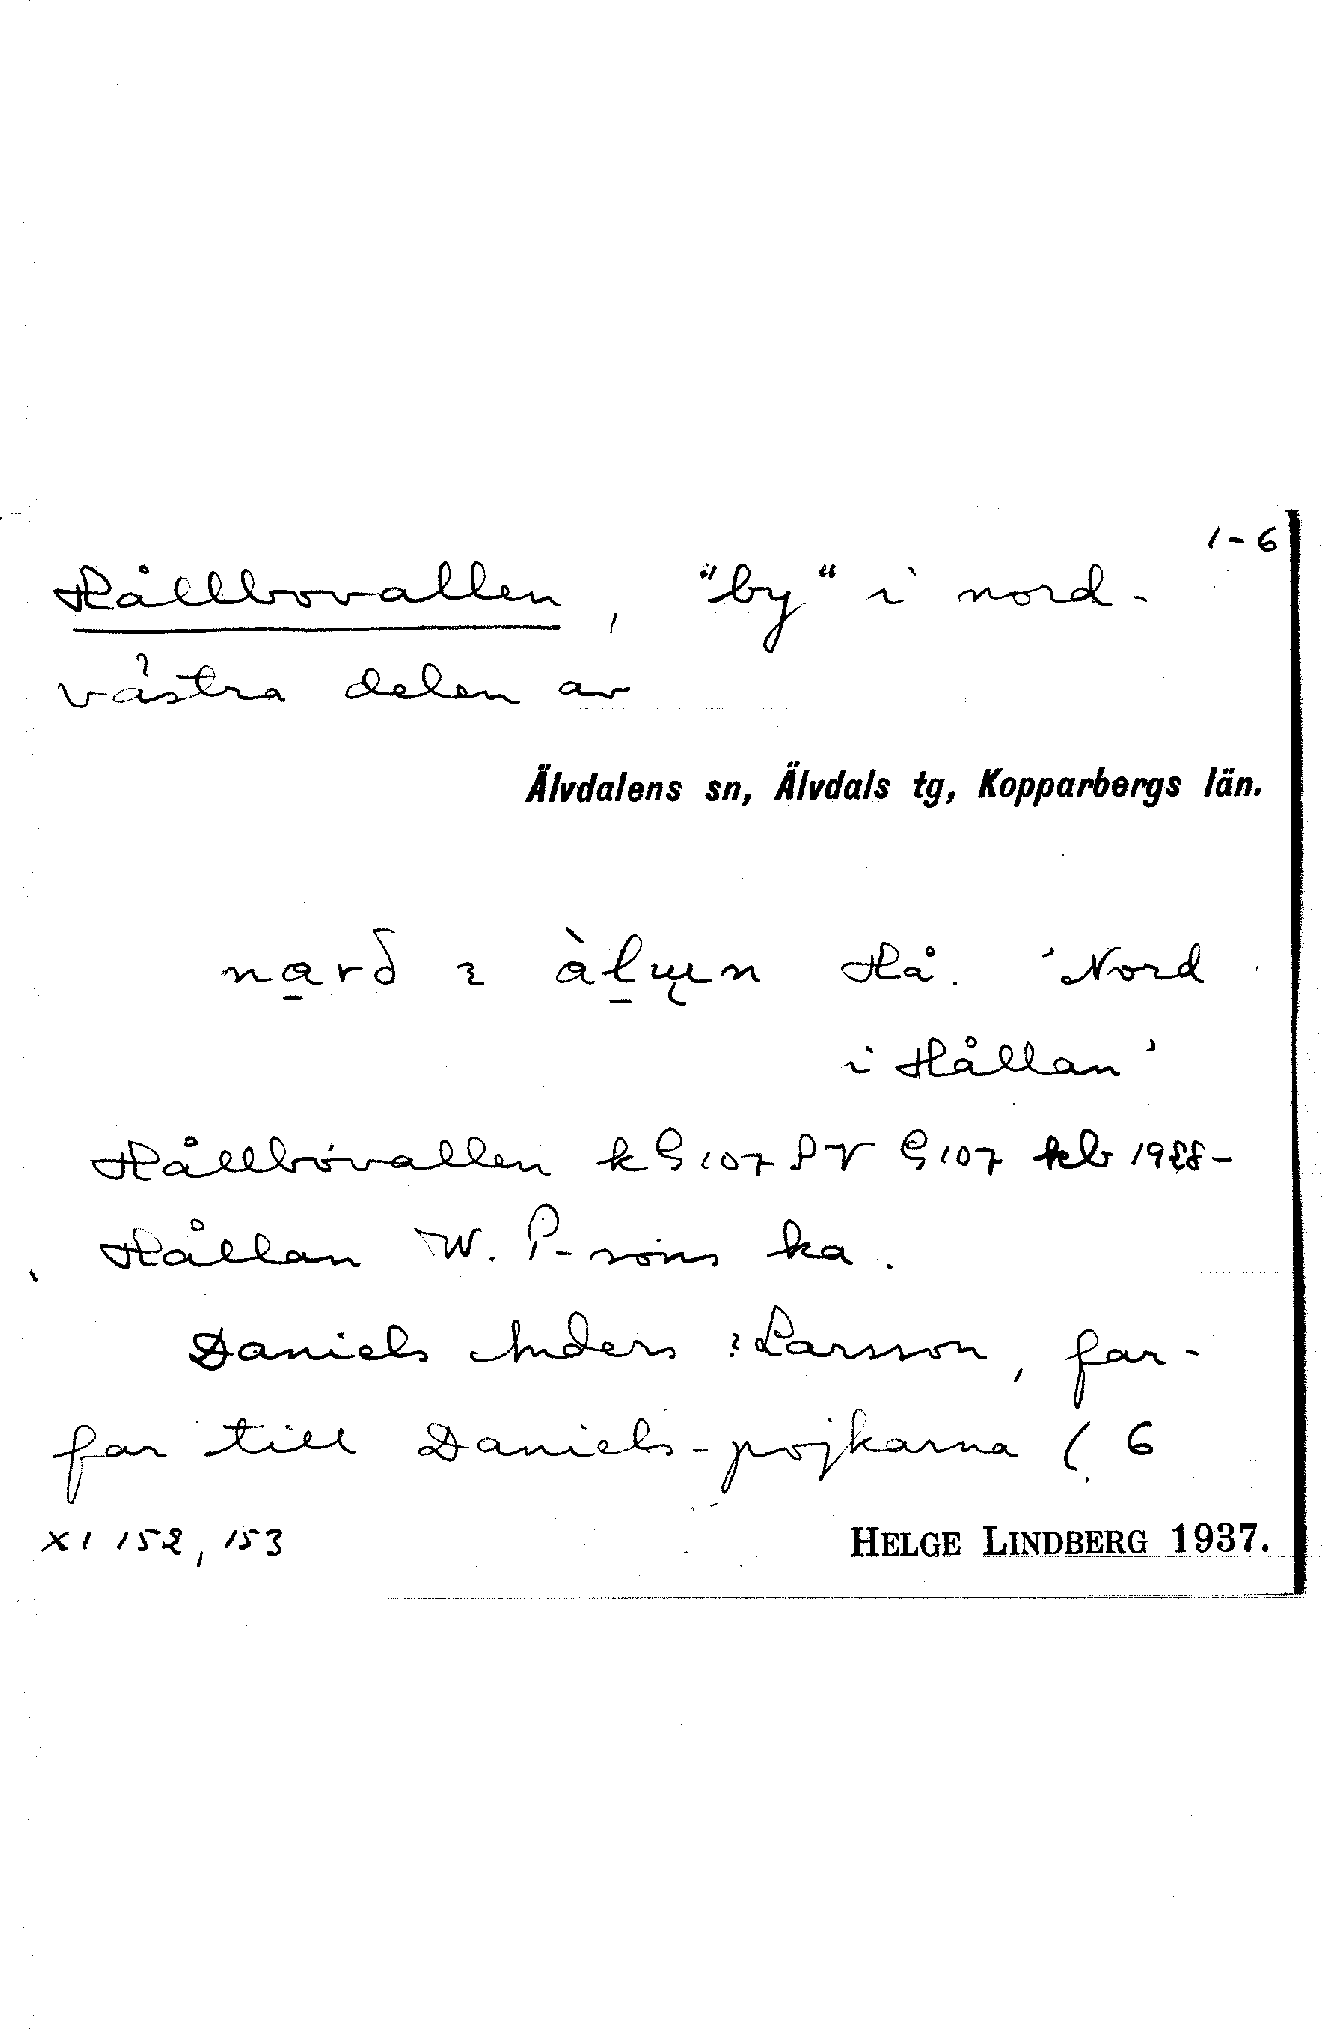 1-6
Hållbovallen, "by" i nord-
västra delen av
Älvdalens sn, Älvdals tg, Kopparbergs län.
Hå. 'Nord
i Hållan'
Hållbovallen k G 107 S V G 107 kb 1928-
Hållan W. P-sons ka.
Daniels Anders Larsson, far-
far till Daniels-pojkarna ( 6
XI 152, 153
HELGE LINDBERG 1937.